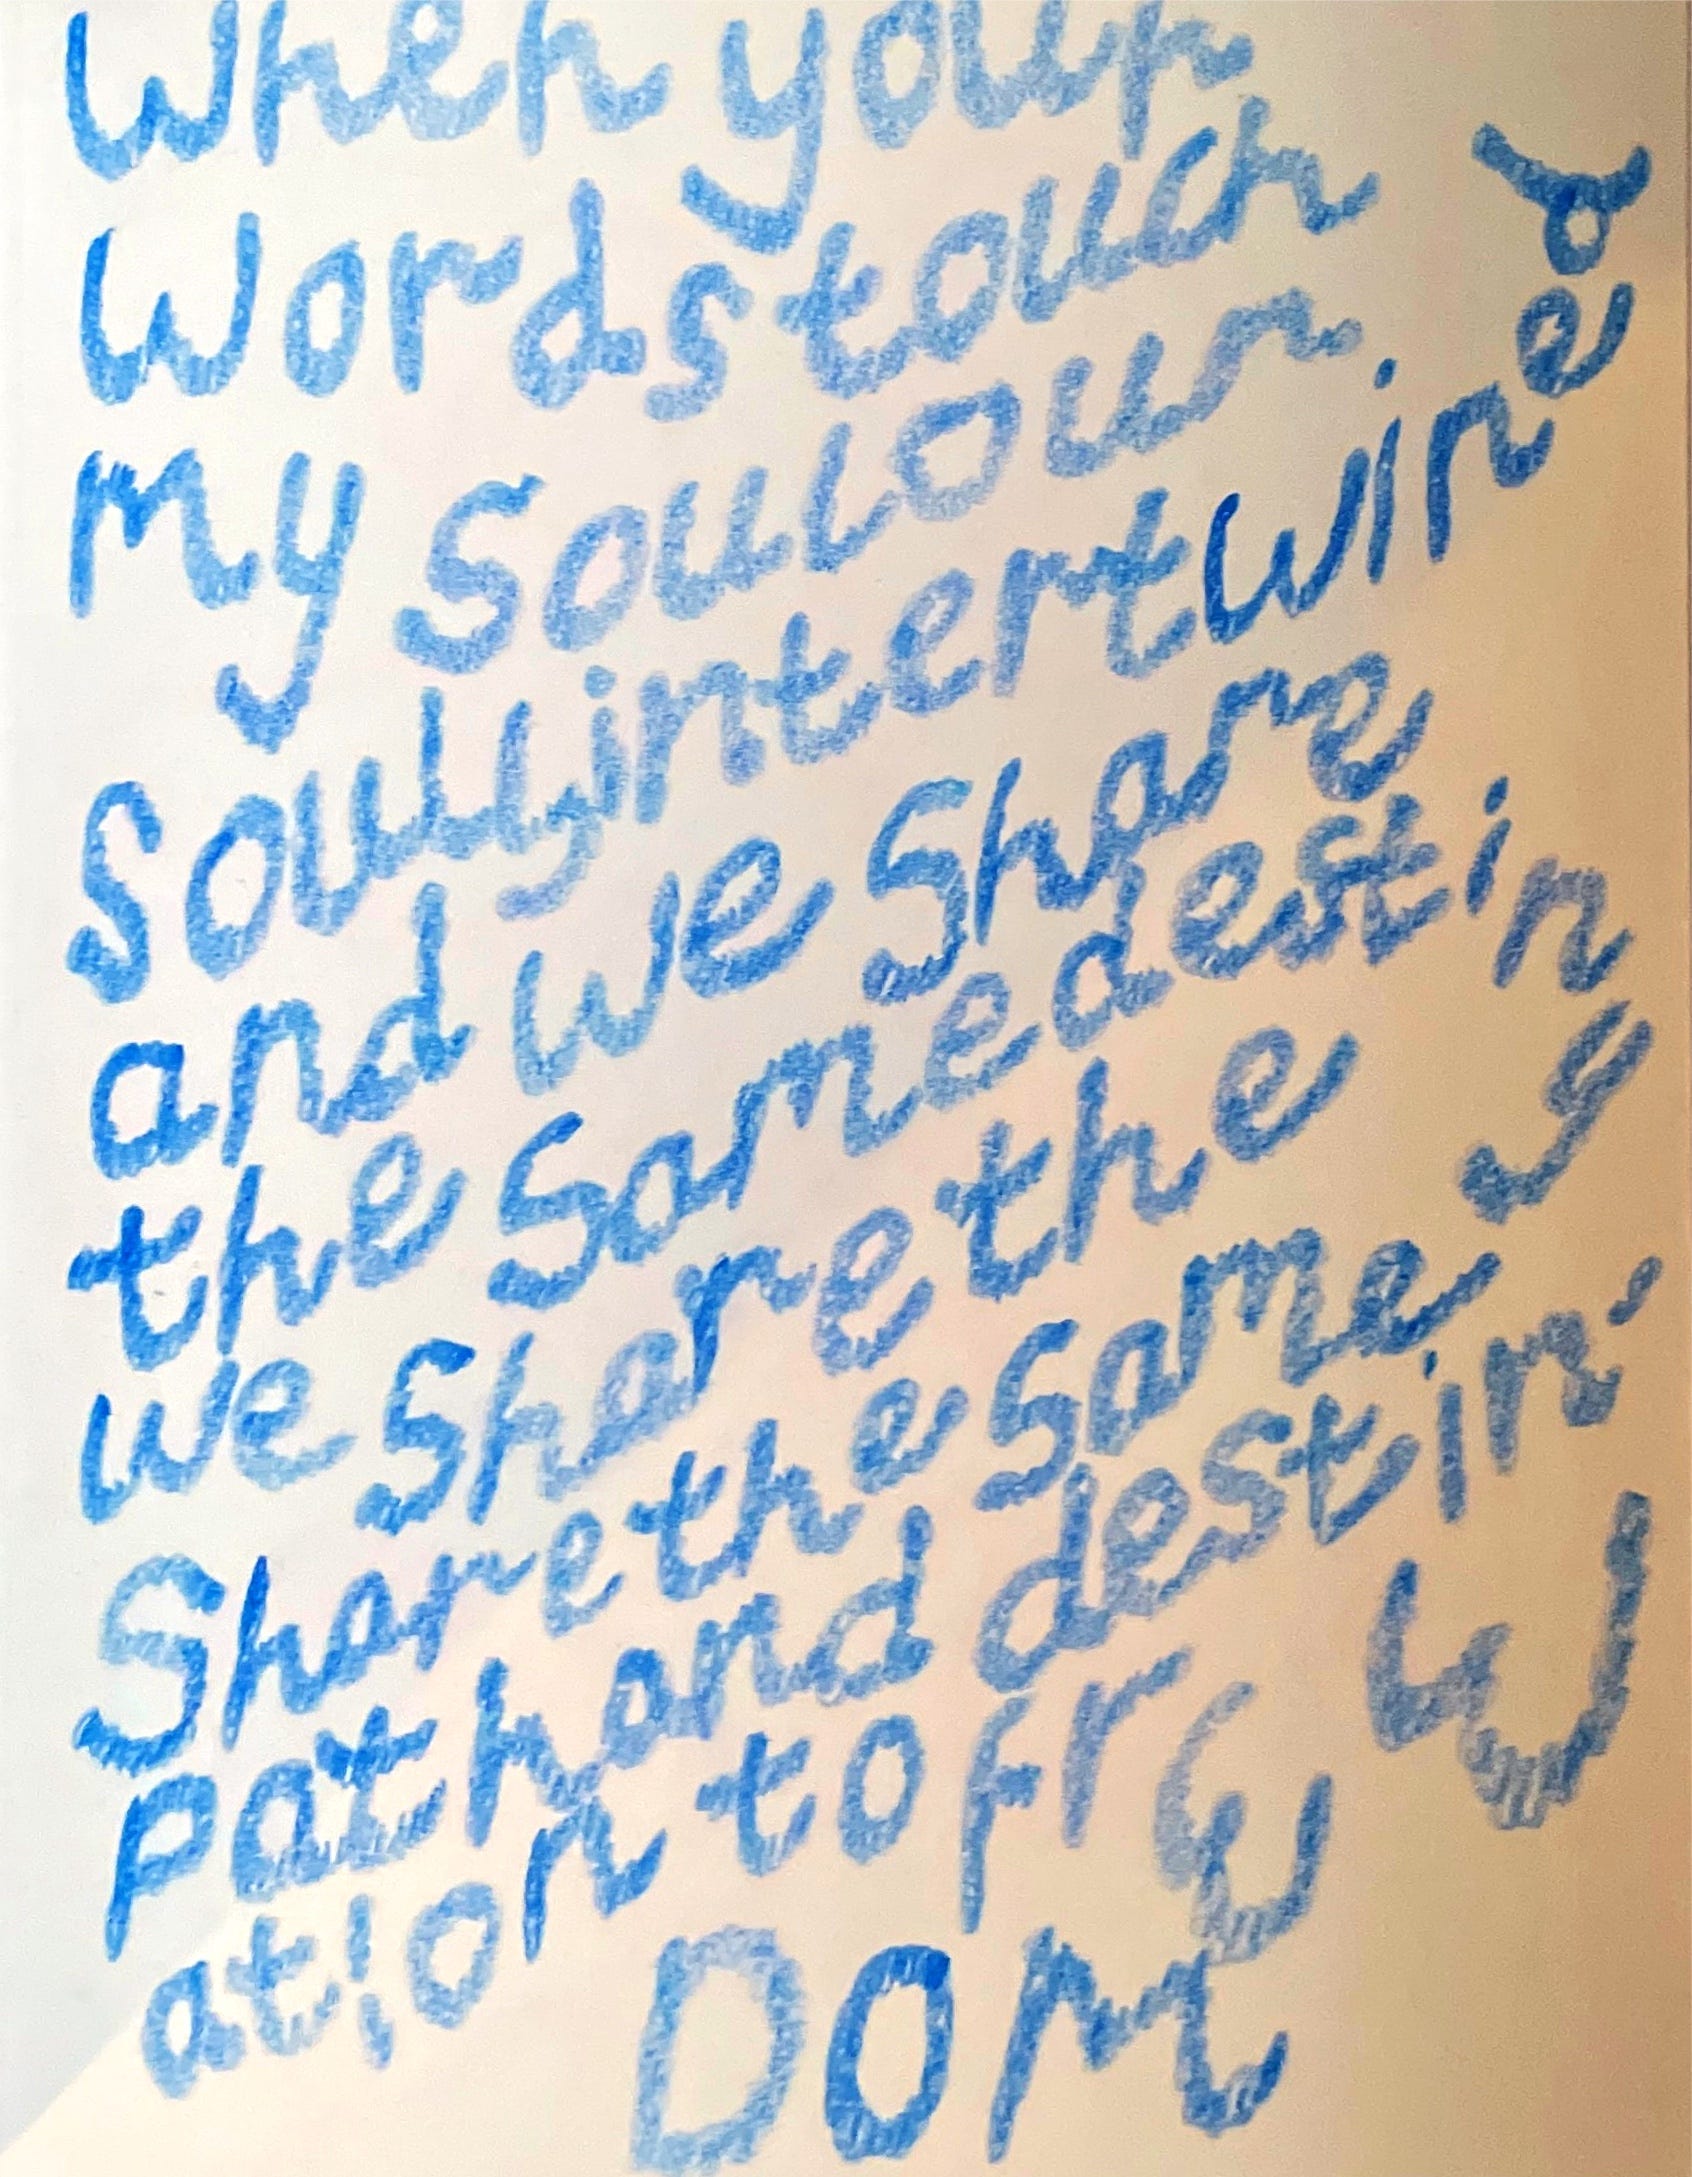 When your
Words touch
my soul our
Souly intertwined
and we Share
the Same destiny
we Share the
Share the Same
path and destin'
ation to frEE
DOM